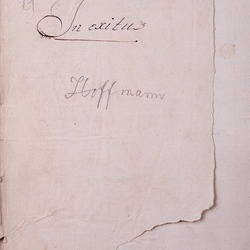 In exitu
Hoffmann